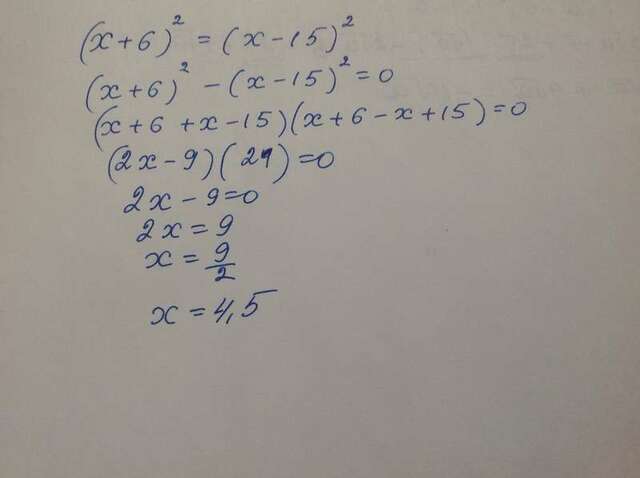 (x+6)² = (x-15)²
(x+6)² - (x-15)² = 0
(x+6 +x-15)(x+6-x+15)=0
(2x-9)(21)=0
2x-9=0
2x=9
x = 9/2
x = 4,5